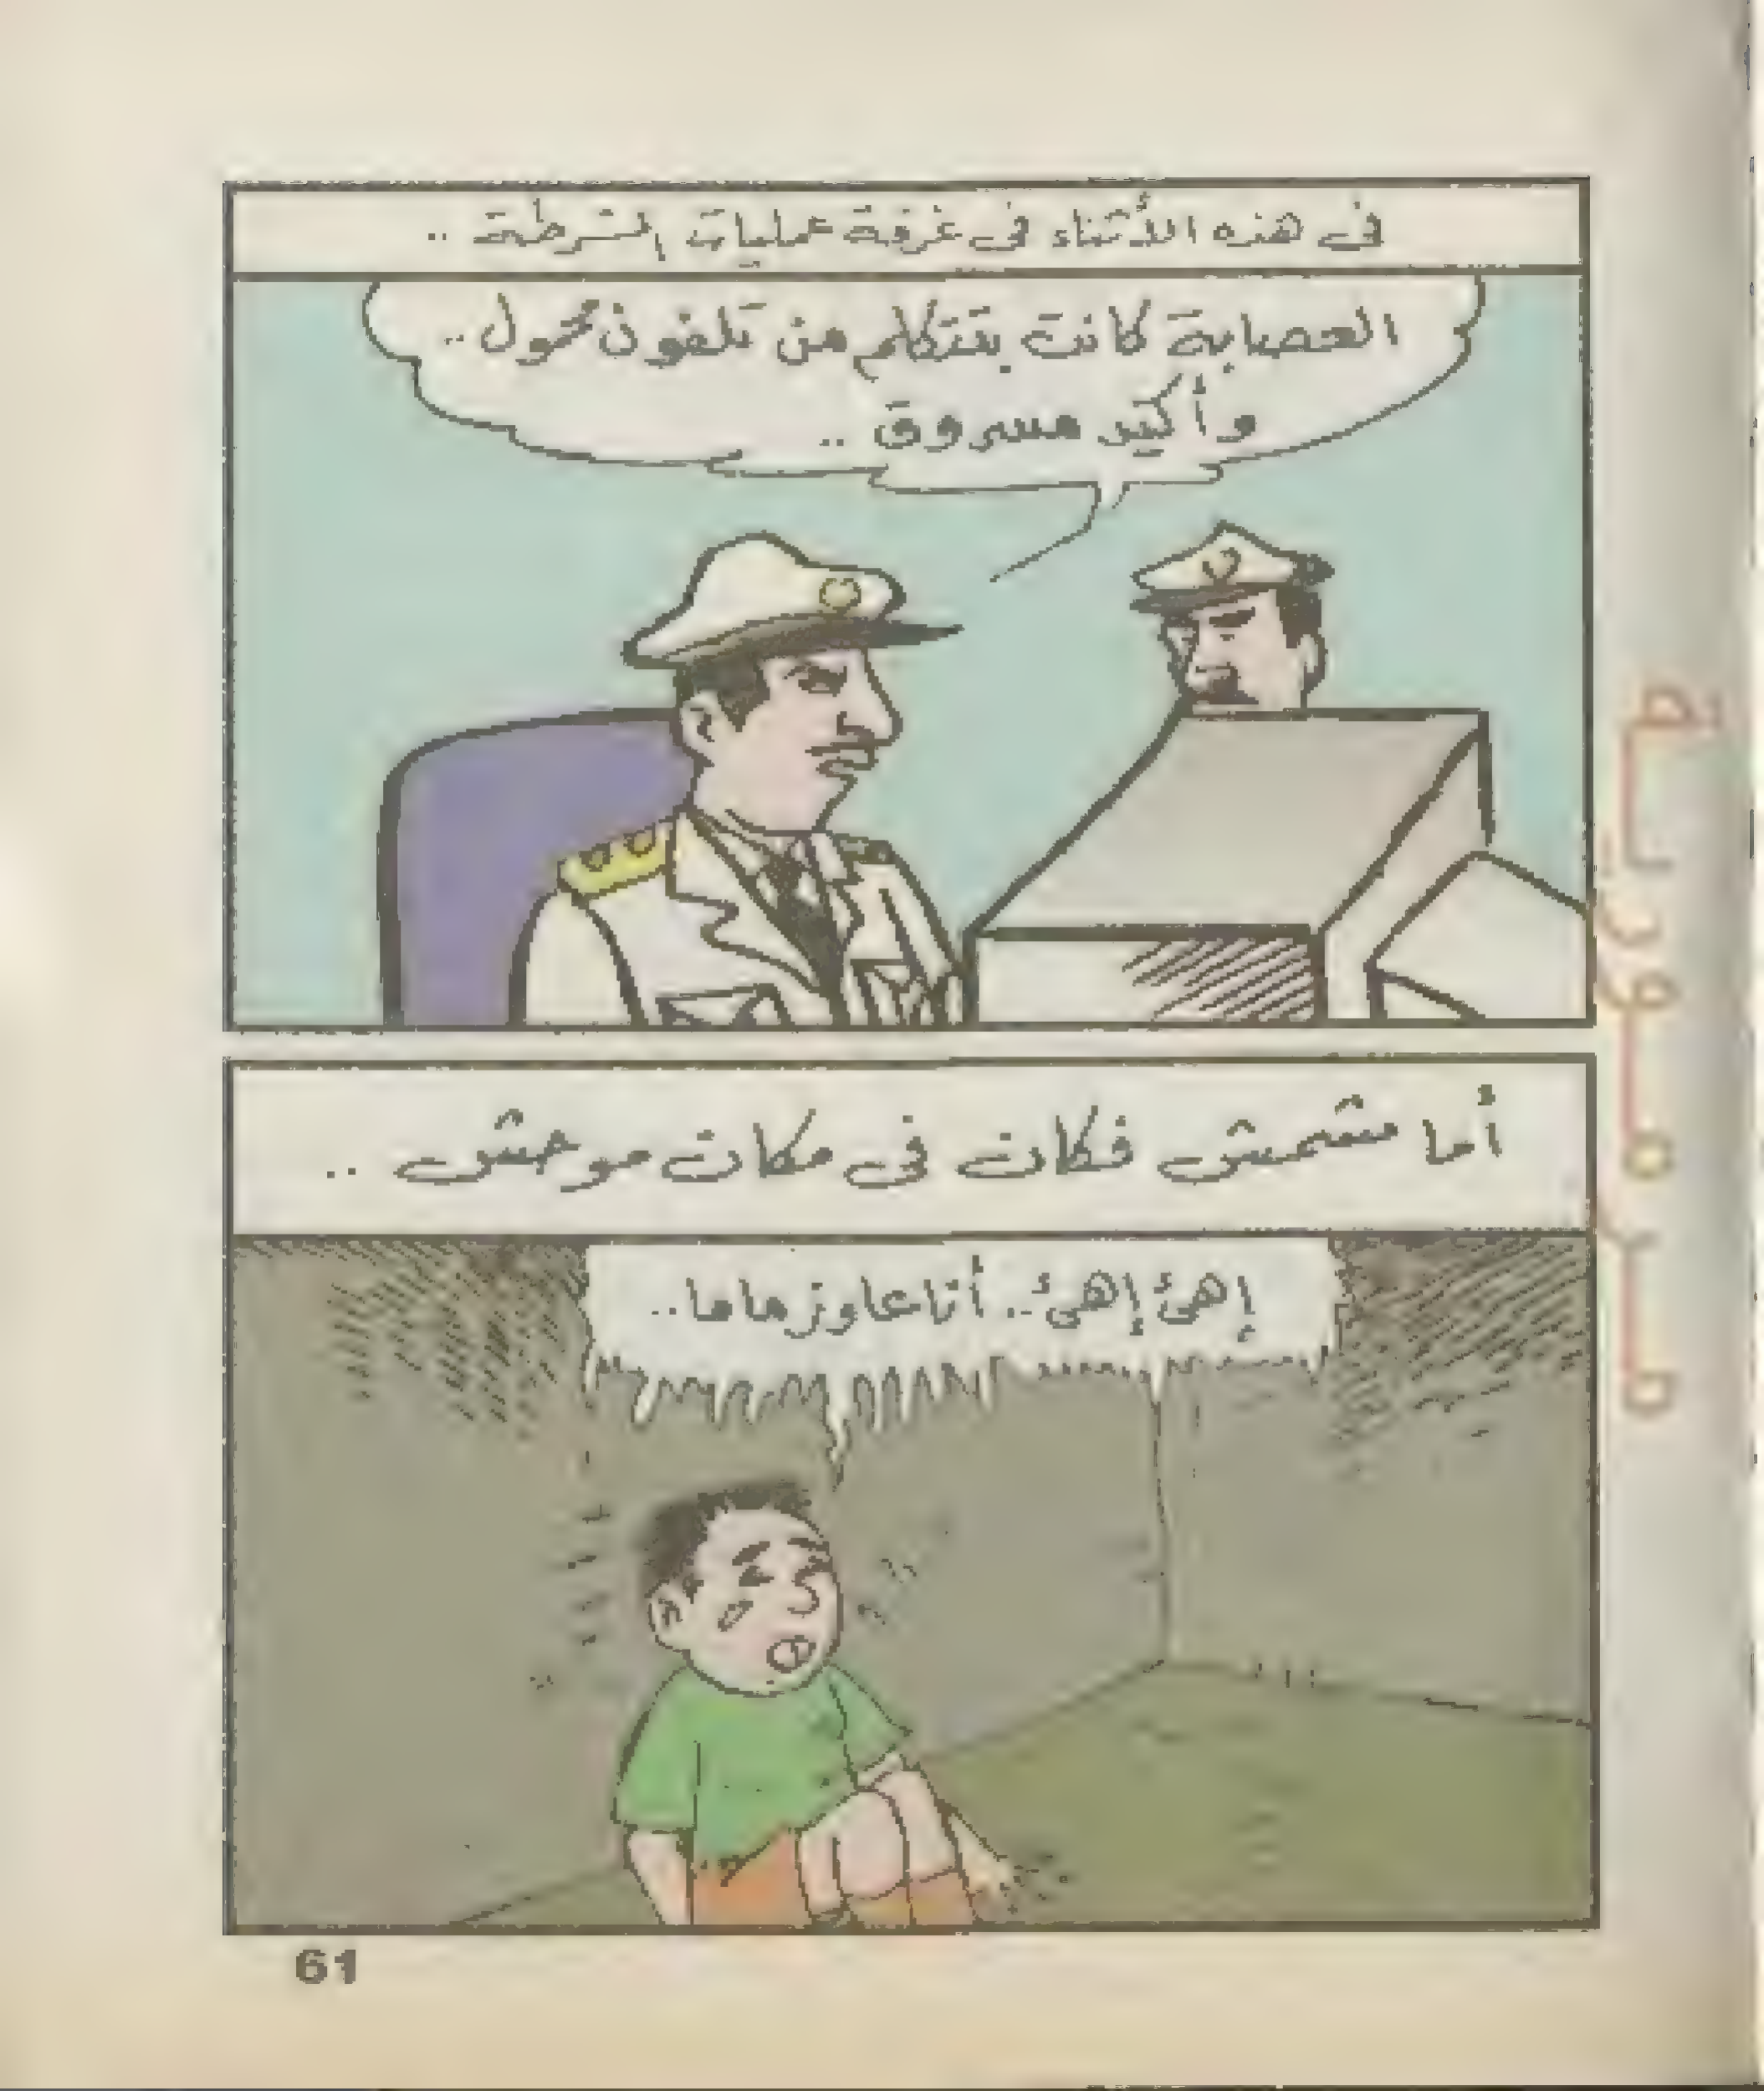 فى هذه الأثناء فى غرفة عمليات الشرطة ..
العصابة كانت بتتكلم من تلفون محمول ..
وأكيد مسروق ..
أما مشمش فكان فى مكان موحش ..
إهئ إهئ .. أنا عاوز ماما ..
61